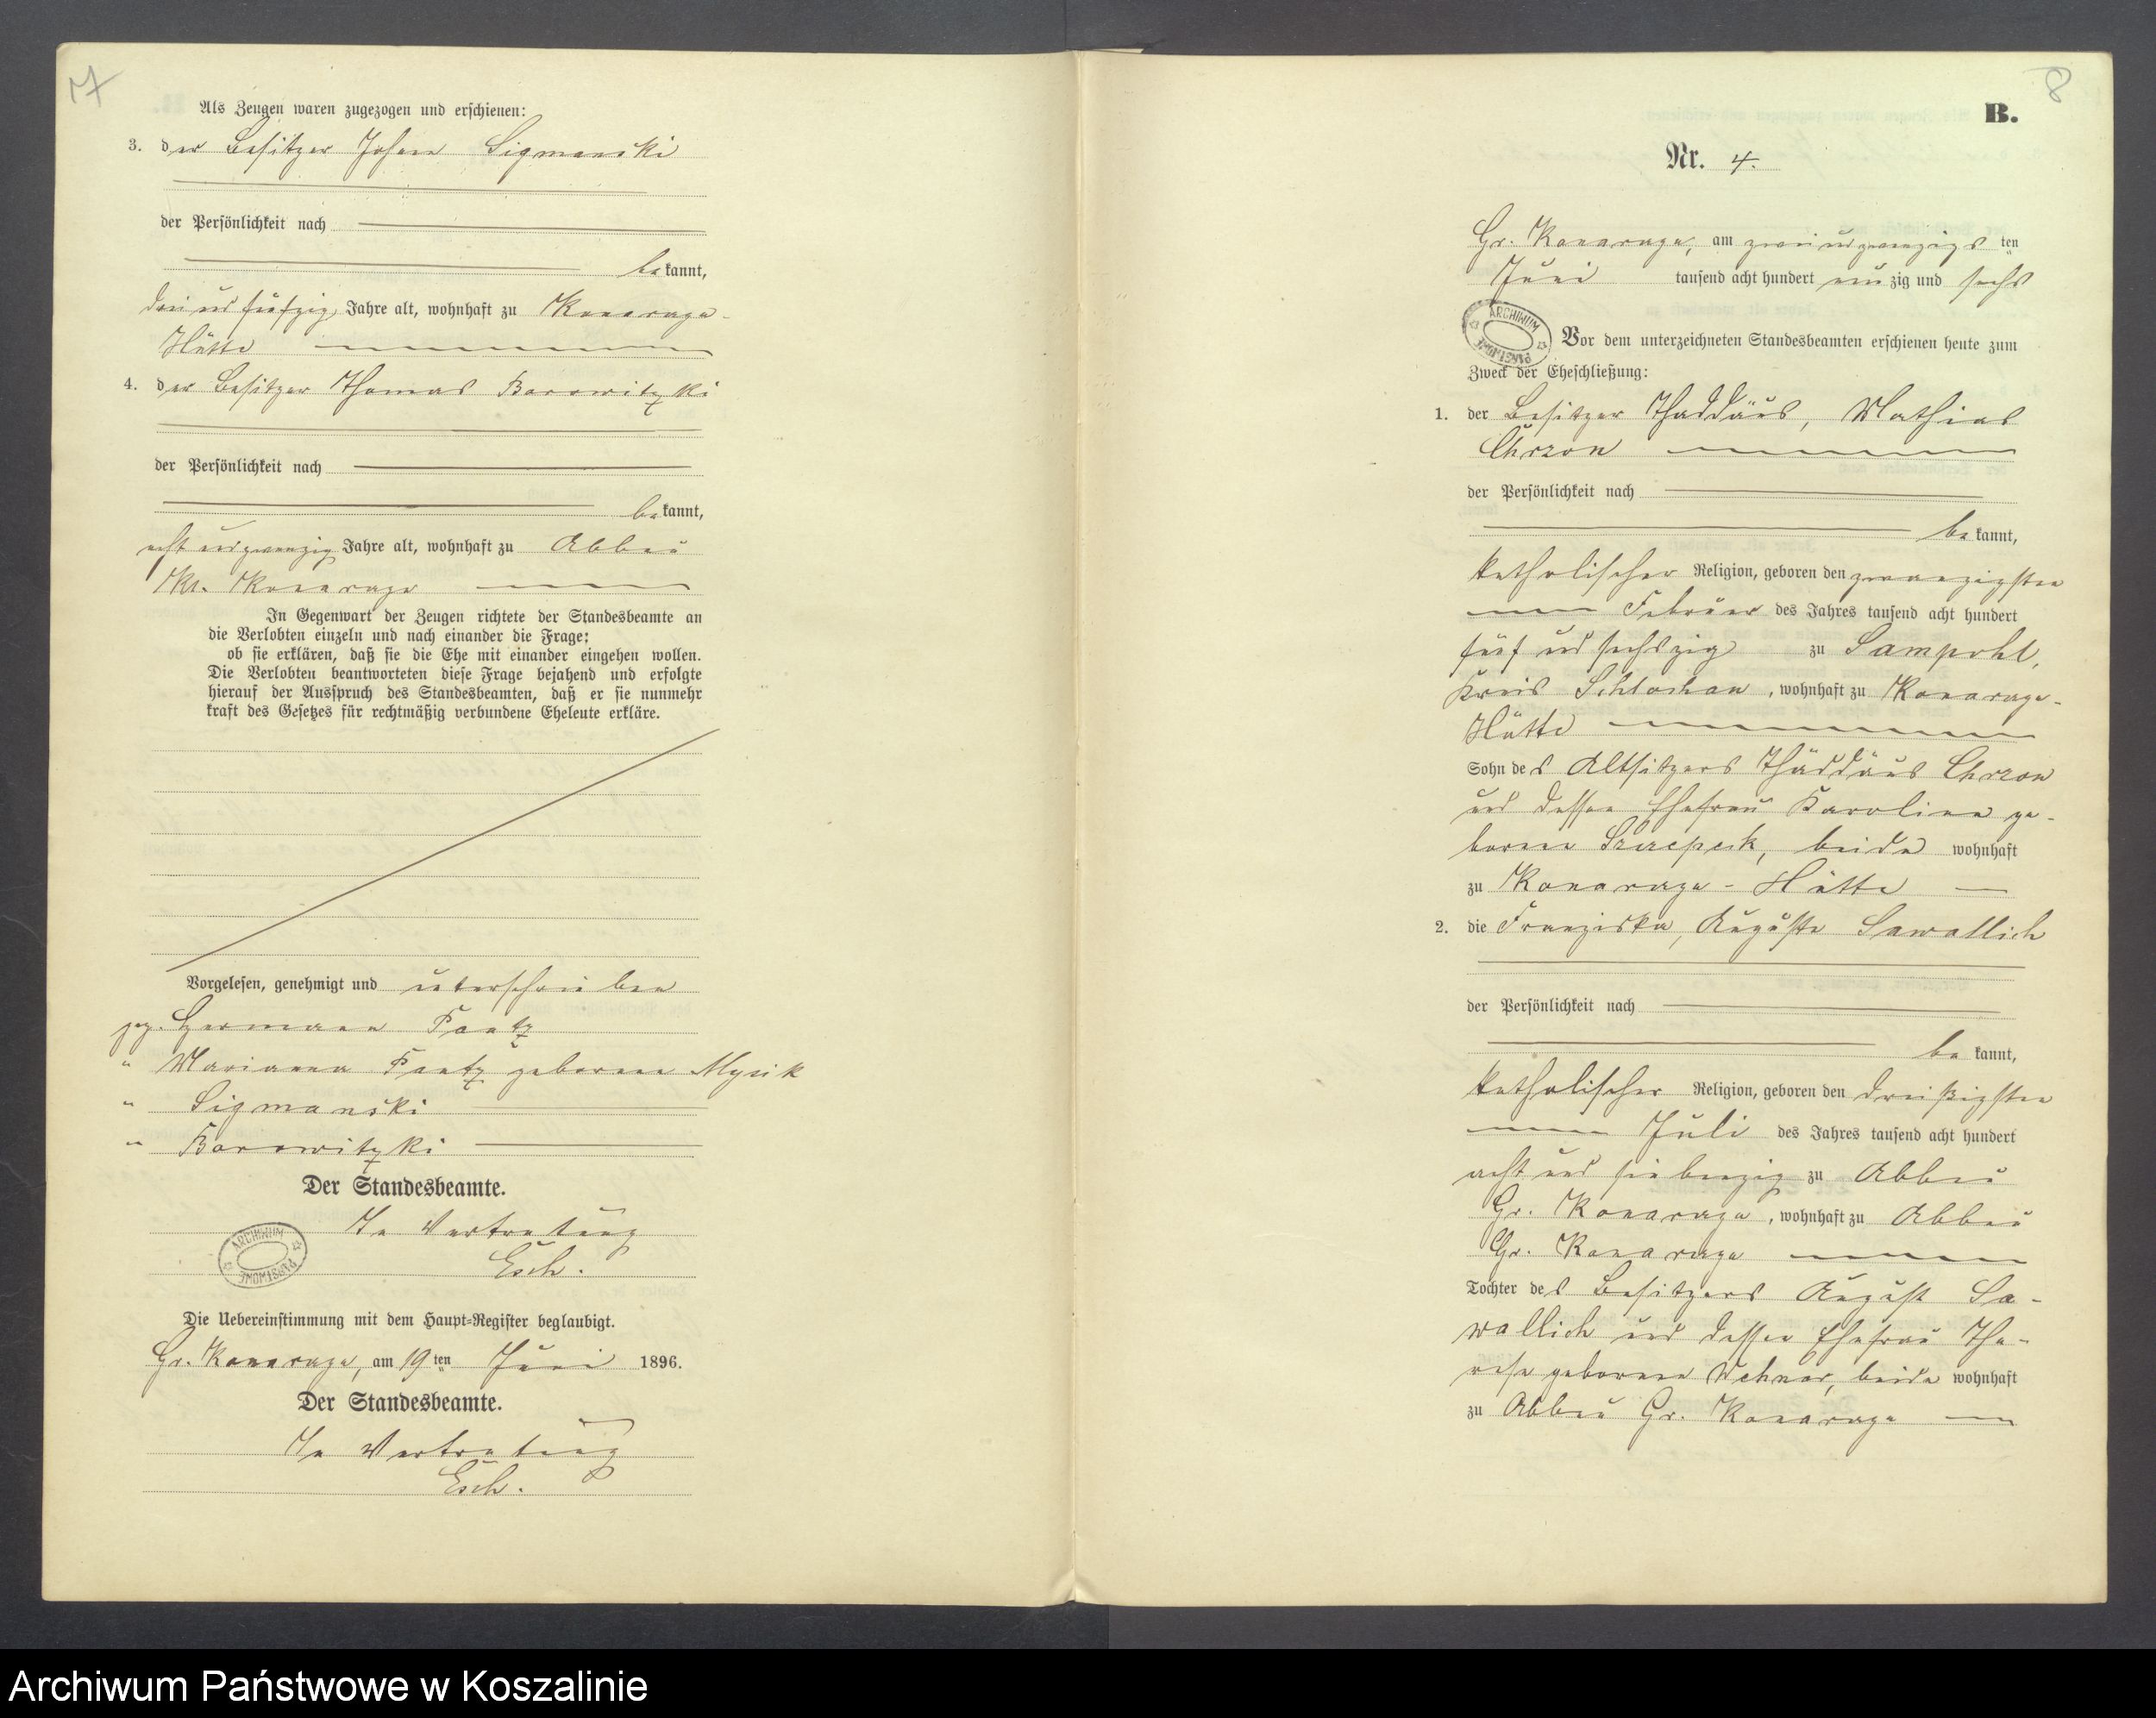 7
Als Zeugen waren zugezogen und erschienen:
3. der Besitzer Johann Sigmanski
der Persönlichkeit nach
bekannt,
drei und fünfzig Jahre alt, wohnhaft zu Konarzyn-
Hütte
4. der Besitzer Thomas Borowitzki
der Persönlichkeit nach
bekannt,
acht und zwanzig Jahre alt, wohnhaft zu Abbau
Kl. Konarzyn
In Gegenwart der Zeugen richtete der Standesbeamte an
die Verlobten einzeln und nach einander die Frage:
ob sie erklären, daß sie die Ehe mit einander eingehen wollen.
Die Verlobten beantworteten diese Frage bejahend und erfolgte
hierauf der Ausspruch des Standesbeamten, daß er sie nunmehr
kraft des Gesetzes für rechtmäßig verbundene Eheleute erkläre.
Vorgelesen, genehmigt und unterschrieben
gez. Hermann Pantz
" Marianna Pantz geborene Mysik
" Sigmanski
" Borowitzki
Der Standesbeamte.
In Vertretung
Esch.
ARCHIWUM PAŃSTWOWE
Die Uebereinstimmung mit dem Haupt-Register beglaubigt.
Gr. Konarzyn, am 19ten Juni 1896.
Der Standesbeamte.
In Vertretung
Esch.
8
B.
Nr. 4.
Gr. Konarzyn, am zwei und zwanzigsten
Juni tausend acht hundert neunzig und sechs
ARCHIWUM PAŃSTWOWE
Vor dem unterzeichneten Standesbeamten erschienen heute zum
Zweck der Eheschließung:
1. der Besitzer Thaddäus, Mathias
Chrzon
der Persönlichkeit nach
bekannt,
katholischer Religion, geboren den zwanzigsten
Februar des Jahres tausend acht hundert
fünf und sechszig zu Sampohl,
Kreis Schlochau, wohnhaft zu Konarzyn-
Hütte
Sohn des Altsitzers Thäddäus Chrzon
und dessen Ehefrau Karoline ge-
borene Szczepeck, beide wohnhaft
zu Konarzyn-Hütte
2. die Franziska, Auguste Sawallich
der Persönlichkeit nach
bekannt,
katholischer Religion, geboren den dreißigsten
Juli des Jahres tausend acht hundert
acht und siebenzig zu Abbau
Gr. Konarzyn, wohnhaft zu Abbau
Gr. Konarzyn
Tochter des Besitzers August Sa-
wallich und dessen Ehefrau The-
rese geborene Wehner, beide wohnhaft
zu Abbau Gr. Konarzyn
Archiwum Państwowe w Koszalinie